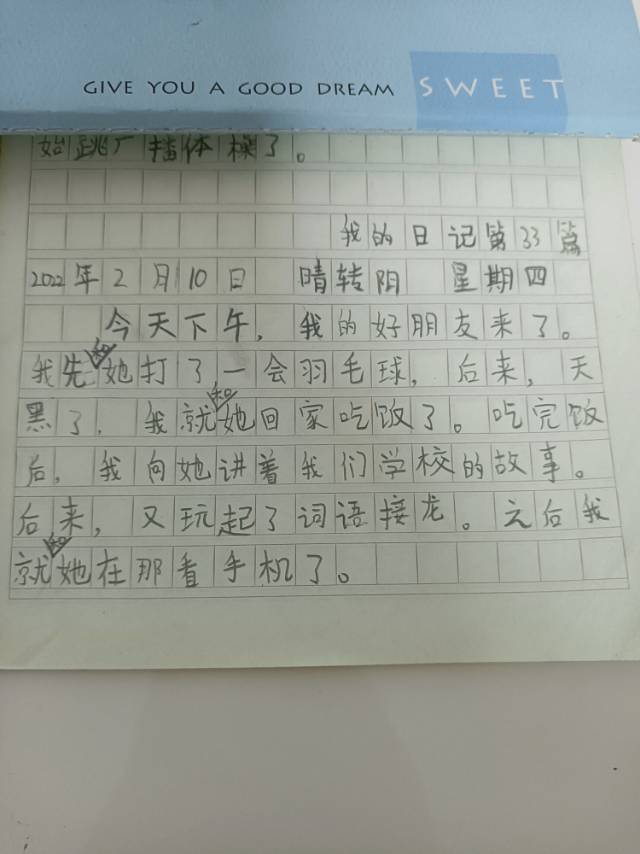 GIVE YOU A GOOD DREAM SWEET
始跳广播体操了。
我的日记第33篇
2022年2月10日 晴转阴 星期四
今天下午，我的好朋友来了。
我先和她打了一会羽毛球，后来，天
黑了，我就和她回家吃饭了。吃完饭
后，我向她讲着我们学校的故事。
后来，又玩起了词语接龙。云后我
就和她在那看手机了。